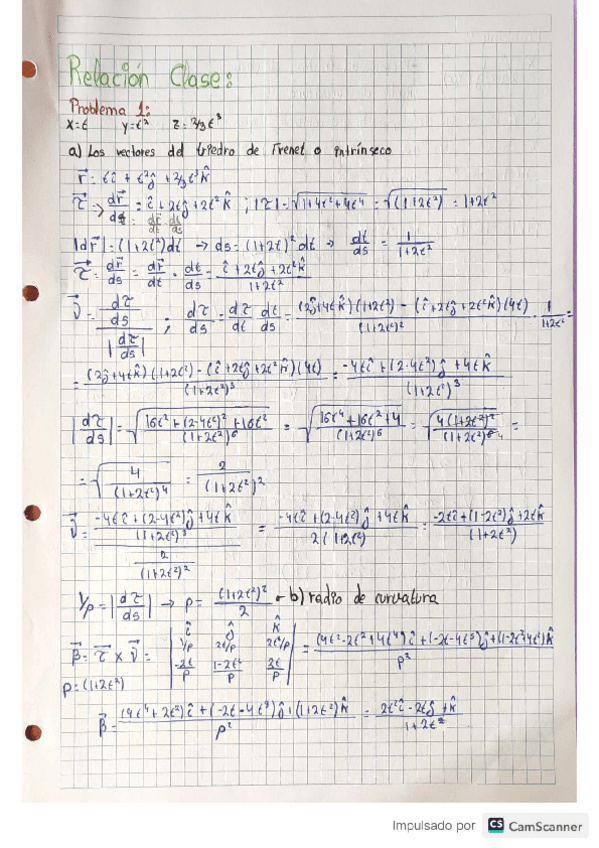 Relación Clase:
Problema 1:
x=t y=t² z=2/3t³
a) Los vectores del triedro de Frenet o intrínseco
r⃗ = tî + t²ĵ + 2/3t³k̂
τ⃗ => dr⃗/dt = î + 2tĵ + 2t²k̂ ; |τ| = √(1+4t²+4t⁴) = √((1+2t²)) = 1+2t²
|dr⃗| = (1+2t²)dt → ds = (1+2t)²dt → dt/ds = 1/(1+2t²)
τ⃗ = dr⃗/ds = dr⃗/dt · dt/ds = (î+2tĵ+2t²k̂)/(1+2t²)
ν⃗ = (dτ/ds)/|dτ/ds| ; dτ/ds = dτ/dt dt/ds = ((2ĵ+4tk̂)(1+2t²) - (î+2tĵ+2t²k̂)(4t))/(1+2t²)² · 1/(1+2t²) =
= ((2ĵ+4tk̂)(1+2t²) - (î+2tĵ+2t²k̂)(4t))/(1+2t²)³ = (-4tî+(2-4t²)ĵ+4tk̂)/(1+2t²)³
|dτ⃗/ds| = √((16t²+(2-4t²)²+16t²)/(1+2t²)⁶) = √((16t⁴+16t²+4)/(1+2t²)⁶) = √(4(1+2t²)²/(1+2t²)⁶ ⁴) =
= √(4/(1+2t²)⁴) = 2/(1+2t²)²
ν⃗ = ((-4tî+(2-4t²)ĵ+4tk̂)/(1+2t²)³)/(2/(1+2t²)²) = (-4tî+(2-4t²)ĵ+4tk̂)/(2(1+2t²)) = (-2tî+(1-2t²)ĵ+2tk̂)/(1+2t²)
1/ρ = |dτ⃗/ds| → ρ = (1+2t²)²/2 - b) radio de curvatura
β⃗ = τ⃗ × ν⃗ = | î ĵ k̂ ; 1/p 2t/p 2t²/p ; -2t/p (1-2t²)/p 2t/p | = ((4t²-2t²+4t⁴)î+(-2t-4t³)ĵ+(1-2t²+4t²)k̂)/p²
p = (1+2t²)
β⃗ = ((4t⁴+2t²)î+(-2t-4t³)ĵ+(1+2t²)k̂)/p² = (2t²î-2tĵ+k̂)/(1+2t²)
Impulsado por CS CamScanner